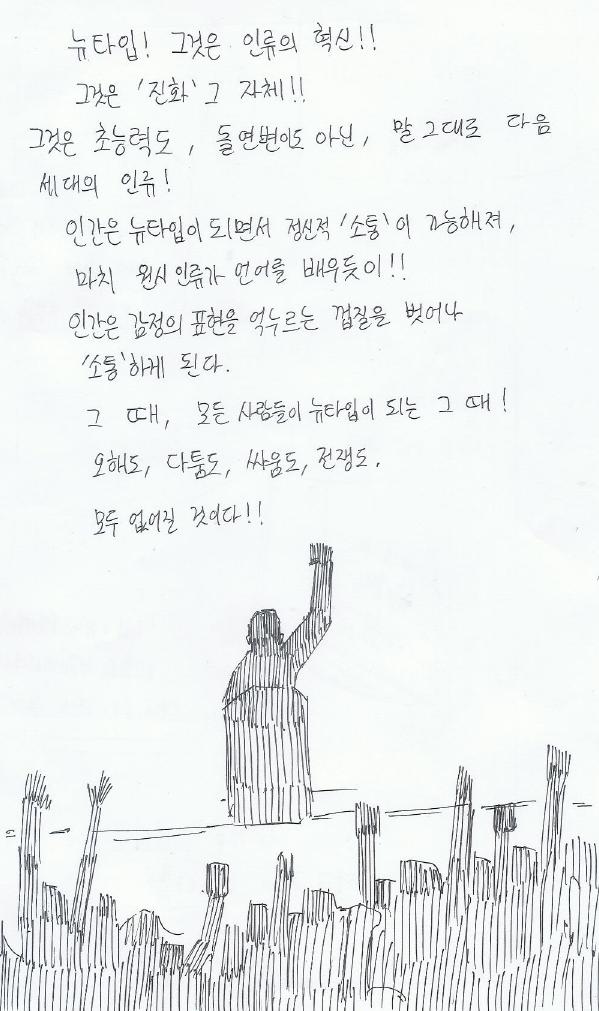 뉴타입! 그것은 인류의 혁신!!
그것은 '진화' 그 자체!!
그것은 초능력도, 돌연변이도 아닌, 말 그대로 다음
세대의 인류!
인간은 뉴타입이 되면서 정신적 '소통'이 가능해져,
마치 원시 인류가 언어를 배우듯이!!
인간은 감정의 표현을 억누르는 껍질을 벗어나
'소통'하게 된다.
그 때, 모든 사람들이 뉴타입이 되는 그 때!
오해도, 다툼도, 싸움도, 전쟁도.
모두 없어질 것이다!!